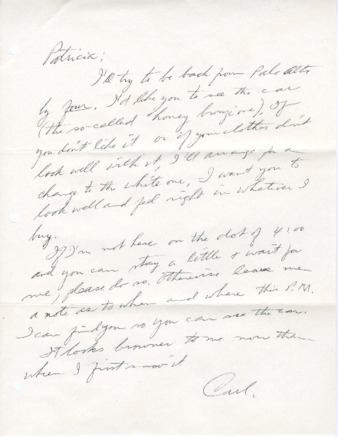 Patricia:
I'll try to be back from Palo Alto
by four. I'd like you to see the car
(the so-called "honey bronzine). If
you don't like it or if your clothes don't
look well with it, I'll arrange for a
change to the white one. I want you to
look well and feel right in whatever I
buy.
If I'm not here on the dot of 4:00
and you can stay a little & wait for
me, please do so. Otherwise leave me
a note as to when and where this P.M.
I can find you so you can see the car.
It looks browner to me now than
when I first saw it
Carl.